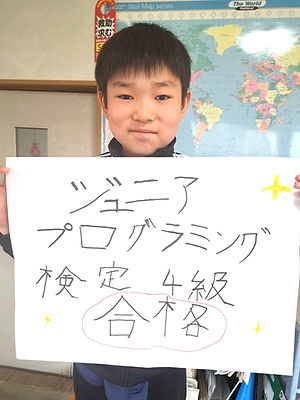 救助
求む
Wall Map series
The World
ジュニア
プログラミング
検定 4級
合格